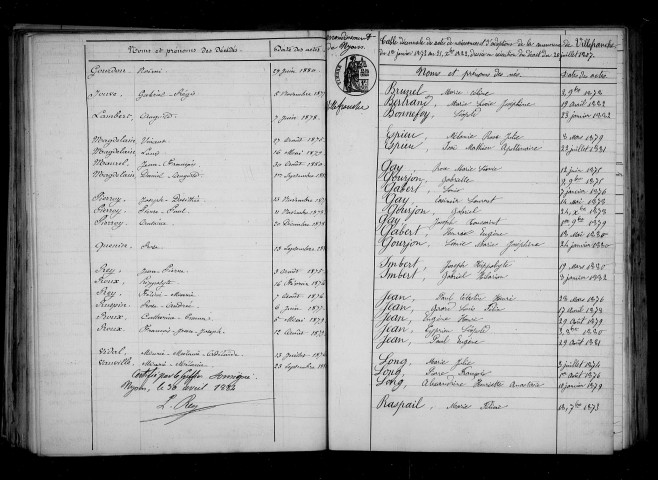 Noms et prénoms des Décédés. Date des actes
Gourdon Noémi 29 juin 1880
Juve Gabriel Régis 5 Novembre 187
Lambert Auguste 7 juin 1878
Magdelain Vincent 17 août 1875
Magdelain
Maurel Jean François 30 août 1880
Magdelain Daniel 10 Septembre 188
Pierroy Joseph 25 Novembre 187
Pierroy Pierre Paul 11 Novembre 187
Pierroy 20 Décembre 187
Quenin Rose 13 Septembre 188
Rey Jean Pierre 9 août 1875
Roux Hippolyte 16 février 1876
Rey 7 août 1876
Rose 6 juin 187
Roux Catherine 5 Mai 1879
Roux François Jean Joseph 12 août 18
Vidal 15 juillet 187
23 Septembre 188
Certifié par le Greffier
Nyons, le 30 avril 1883
L. Rey
arrondissement
de Nyons
Villefranche
Table décennale des actes de naissances et d'adoptions de la commune de Villefranche
du 1er janvier 1873 au 31 Xbre 1882, dressée en exécution du décret du 20 juillet 1807.
Noms et prénoms des nés. Date des actes
Bruzel, Marie Céline 8 9bre 1873
Bertrand, Marie Louise Joséphine 19 Août 1882
Bonnefoy, Léopold 23 janvier 1882
Espieu, Mélanie Rose Julie 3 mars 1879
Espieu, José Mathieu Apollinaire 23 juillet 1881
Gay Rose Marie Louise 12 juin 1871
Gourjon, 8 9bre 1875
Gabert, Louis 7 janvier 1876
Gay, Casimir Laurent 14 mai 1878
Gourjon, Gabriel 24 Xbre 1878
Gay, Joseph Toussaint 1er 9bre 1879
Gabert, Henri Eugène 13 Mai 1880
Gourjon, Louise Marie Joséphine 24 janvier 1880
Imbert, Joseph Hippolyte 19 mars 1880
Imbert, Gabriel Hilarion 3 janvier 1882
Jean, Paul Célestin Henri 23 mars 1876
Jean, André Louis Félix 17 Avril 1878
Jean, Eugène Henri 29 août 1879
Jean, Cyprien Léopold 3 Xbre 1880
Jean, Paul Eugène 29 août 1881
Long, Marie Julie 3 juillet 1874
Long, Pierre François 1er août 1876
Long, Alexandrine Henriette Anastasie 12 janvier 1879
Raspail, Marie Céline 13 7bre 1873